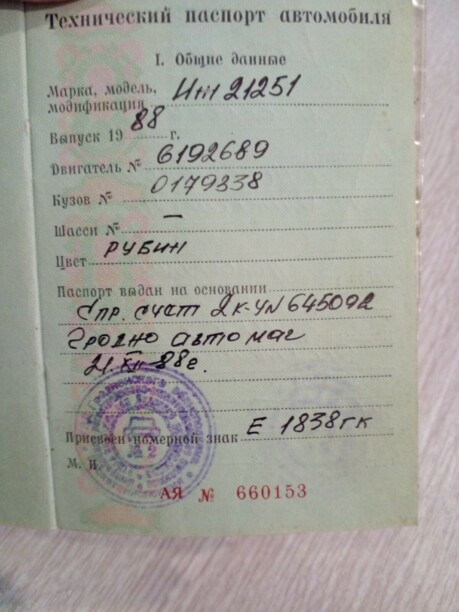 Технический паспорт автомобиля
I. Общие данные
Марка, модель, Иж 21251
модификация
Выпуск 1988 г.
Двигатель № 6192689
Кузов № 0179338
Шасси № —
Цвет РУБИН
Паспорт выдан на основании
Спр. счет 2К-У№645092
Гродно автомаг
21.XII-88г.
Присвоен номерной знак Е 1838ГК
М. П.
АЯ № 660153